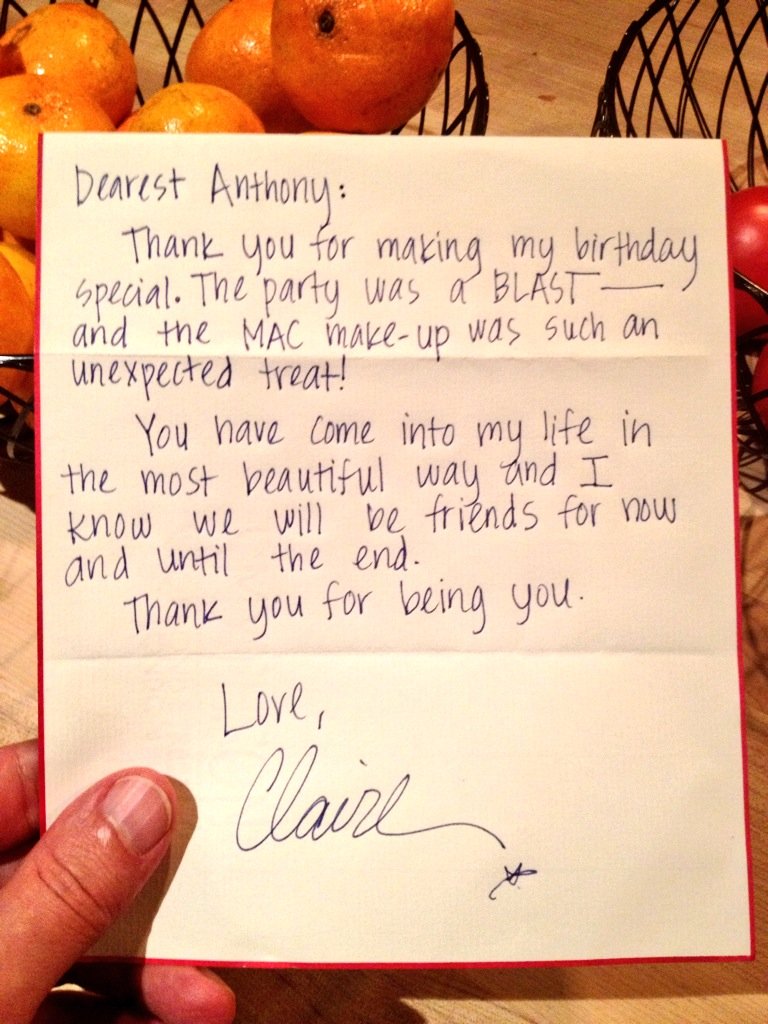 Dearest Anthony:
Thank you for making my birthday
special. The party was a BLAST—
and the MAC make-up was such an
unexpected treat!
You have come into my life in
the most beautiful way and I
know we will be friends for now
and until the end.
Thank you for being you.
Love,
Claire